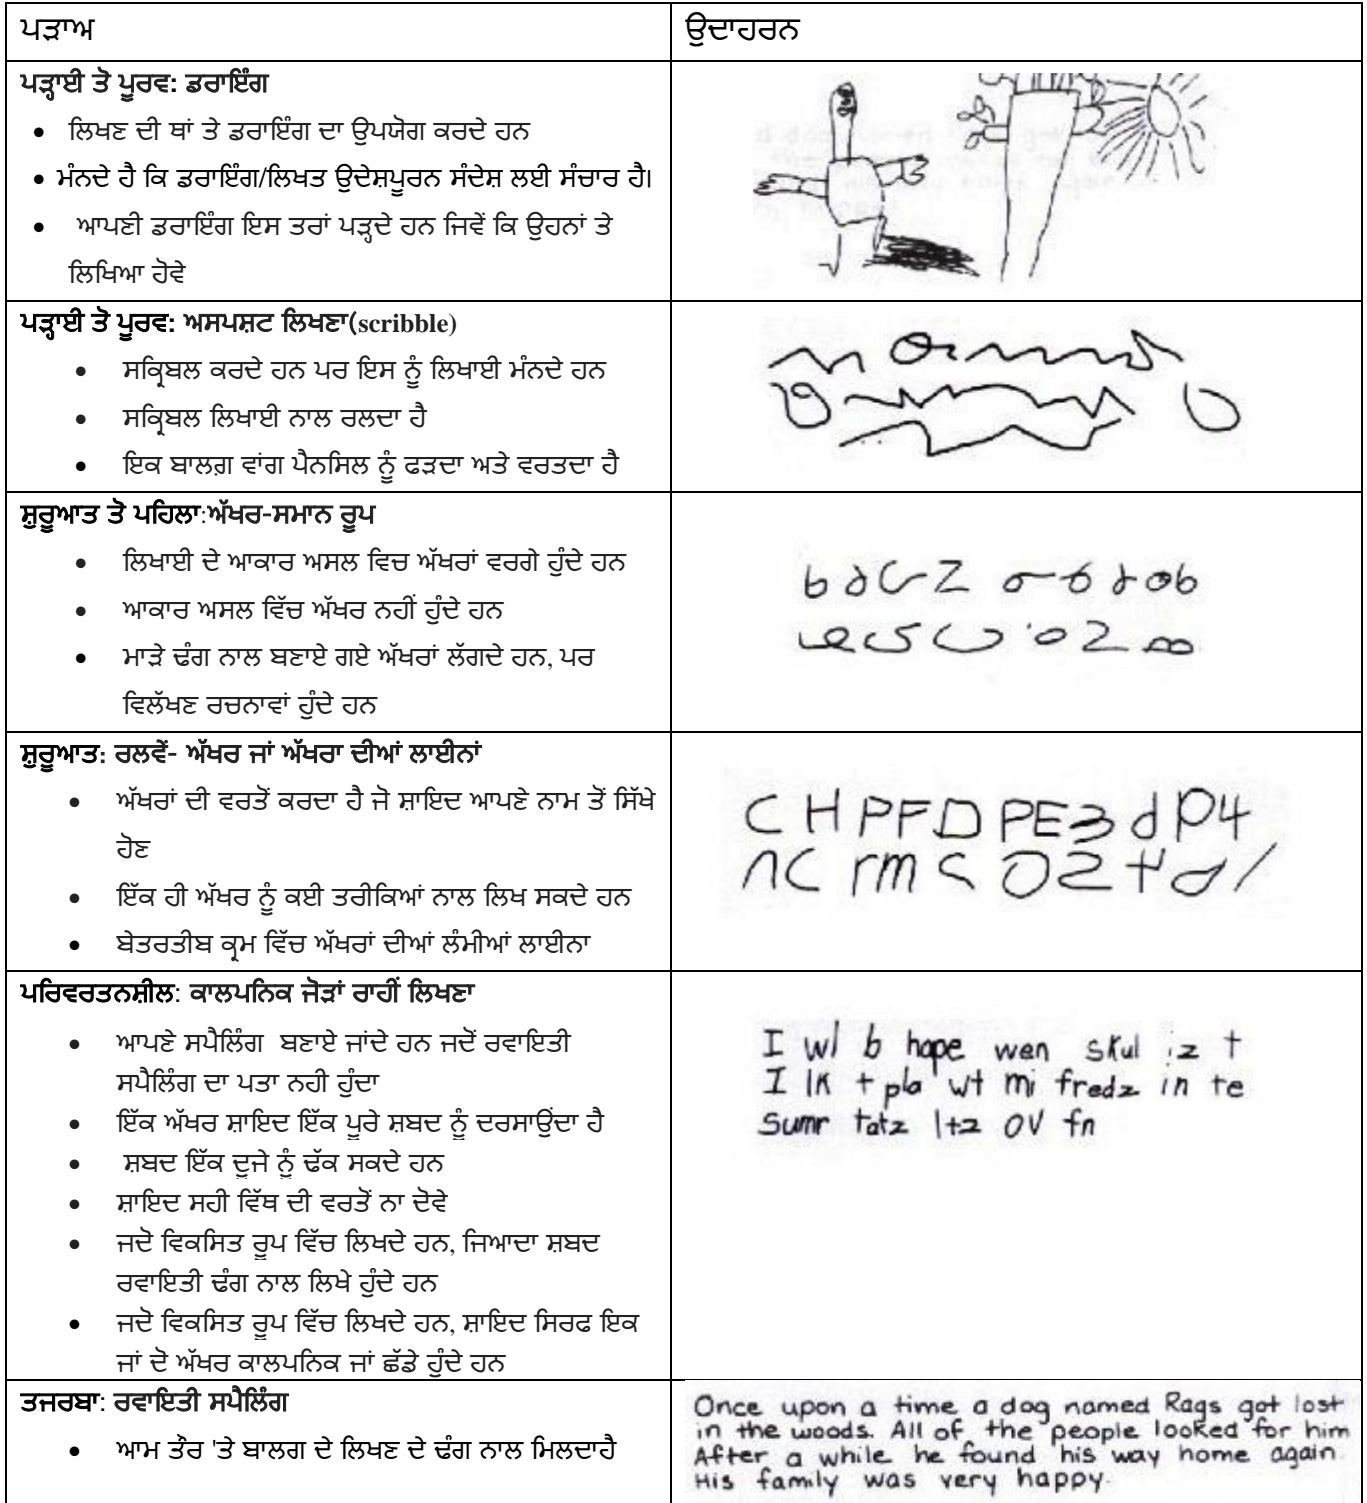 ਪੜਾਅ
ਉਦਾਹਰਨ
ਪੜ੍ਹਾਈ ਤੋ ਪੂਰਵ: ਡਰਾਇੰਗ
• ਲਿਖਣ ਦੀ ਥਾਂ ਤੇ ਡਰਾਇੰਗ ਦਾ ਉਪਯੋਗ ਕਰਦੇ ਹਨ
• ਮੰਨਦੇ ਹੈ ਕਿ ਡਰਾਇੰਗ/ਲਿਖਤ ਉਦੇਸ਼ਪੂਰਨ ਸੰਦੇਸ਼ ਲਈ ਸੰਚਾਰ ਹੈ।
• ਆਪਣੀ ਡਰਾਇੰਗ ਇਸ ਤਰਾਂ ਪੜ੍ਹਦੇ ਹਨ ਜਿਵੇਂ ਕਿ ਉਹਨਾਂ ਤੇ
ਲਿਖਿਆ ਹੋਵੇ
ਪੜ੍ਹਾਈ ਤੋ ਪੂਰਵ: ਅਸਪਸ਼ਟ ਲਿਖਣਾ(scribble)
• ਸਕ੍ਰਿਬਲ ਕਰਦੇ ਹਨ ਪਰ ਇਸ ਨੂੰ ਲਿਖਾਈ ਮੰਨਦੇ ਹਨ
• ਸਕ੍ਰਿਬਲ ਲਿਖਾਈ ਨਾਲ ਰਲਦਾ ਹੈ
• ਇਕ ਬਾਲਗ਼ ਵਾਂਗ ਪੈਨਸਿਲ ਨੂੰ ਫੜਦਾ ਅਤੇ ਵਰਤਦਾ ਹੈ
ਸ਼ੁਰੂਆਤ ਤੋ ਪਹਿਲਾ:ਅੱਖਰ-ਸਮਾਨ ਰੂਪ
• ਲਿਖਾਈ ਦੇ ਆਕਾਰ ਅਸਲ ਵਿਚ ਅੱਖਰਾਂ ਵਰਗੇ ਹੁੰਦੇ ਹਨ
• ਆਕਾਰ ਅਸਲ ਵਿੱਚ ਅੱਖਰ ਨਹੀਂ ਹੁੰਦੇ ਹਨ
• ਮਾੜੇ ਢੰਗ ਨਾਲ ਬਣਾਏ ਗਏ ਅੱਖਰਾਂ ਲੱਗਦੇ ਹਨ, ਪਰ
ਵਿਲੱਖਣ ਰਚਨਾਵਾਂ ਹੁੰਦੇ ਹਨ
ਸ਼ੁਰੂਆਤ: ਰਲਵੇਂ- ਅੱਖਰ ਜਾਂ ਅੱਖਰਾ ਦੀਆਂ ਲਾਈਨਾਂ
• ਅੱਖਰਾਂ ਦੀ ਵਰਤੋਂ ਕਰਦਾ ਹੈ ਜੋ ਸ਼ਾਇਦ ਆਪਣੇ ਨਾਮ ਤੋਂ ਸਿੱਖੇ
ਹੋਣ
• ਇੱਕ ਹੀ ਅੱਖਰ ਨੂੰ ਕਈ ਤਰੀਕਿਆਂ ਨਾਲ ਲਿਖ ਸਕਦੇ ਹਨ
• ਬੇਤਰਤੀਬ ਕ੍ਰਮ ਵਿੱਚ ਅੱਖਰਾਂ ਦੀਆਂ ਲੰਮੀਆਂ ਲਾਈਨਾ
C H PFD PE3 d P4
ਪਰਿਵਰਤਨਸ਼ੀਲ: ਕਾਲਪਨਿਕ ਜੋੜਾਂ ਰਾਹੀਂ ਲਿਖਣਾ
• ਆਪਣੇ ਸਪੈਲਿੰਗ ਬਣਾਏ ਜਾਂਦੇ ਹਨ ਜਦੋਂ ਰਵਾਇਤੀ
ਸਪੈਲਿੰਗ ਦਾ ਪਤਾ ਨਹੀ ਹੁੰਦਾ
• ਇੱਕ ਅੱਖਰ ਸ਼ਾਇਦ ਇੱਕ ਪੂਰੇ ਸ਼ਬਦ ਨੂੰ ਦਰਸਾਉਂਦਾ ਹੈ
• ਸ਼ਬਦ ਇੱਕ ਦੂਜੇ ਨੂੰ ਢੱਕ ਸਕਦੇ ਹਨ
• ਸ਼ਾਇਦ ਸਹੀ ਵਿੱਥ ਦੀ ਵਰਤੋਂ ਨਾ ਦੋਵੇ
• ਜਦੋ ਵਿਕਸਿਤ ਰੂਪ ਵਿੱਚ ਲਿਖਦੇ ਹਨ, ਜਿਆਦਾ ਸ਼ਬਦ
ਰਵਾਇਤੀ ਢੰਗ ਨਾਲ ਲਿਖੇ ਹੁੰਦੇ ਹਨ
• ਜਦੋ ਵਿਕਸਿਤ ਰੂਪ ਵਿੱਚ ਲਿਖਦੇ ਹਨ, ਸ਼ਾਇਦ ਸਿਰਫ ਇਕ
ਜਾਂ ਦੋ ਅੱਖਰ ਕਾਲਪਨਿਕ ਜਾਂ ਛੱਡੇ ਹੁੰਦੇ ਹਨ
I wl b hape wen skul iz t
I lk t pla wt mi fredz in te
Sumr tatz ltz ov fn
ਤਜਰਬਾ: ਰਵਾਇਤੀ ਸਪੈਲਿੰਗ
• ਆਮ ਤੌਰ 'ਤੇ ਬਾਲਗ ਦੇ ਲਿਖਣ ਦੇ ਢੰਗ ਨਾਲ ਮਿਲਦਾਹੈ
Once upon a time a dog named Rags got lost
in the woods. All of the people looked for him
After a while he found his way home again.
His family was very happy.